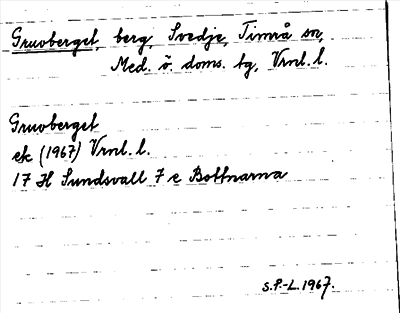 Gruvberget, berg, Svedje, Timrå sn,
Med. ö. doms. tg, Vrnl. l.
Gruvberget
ek (1967) Vrnl. l.
17 H Sundsvall 7 e Bottnarna
S.P.-L. 1967.